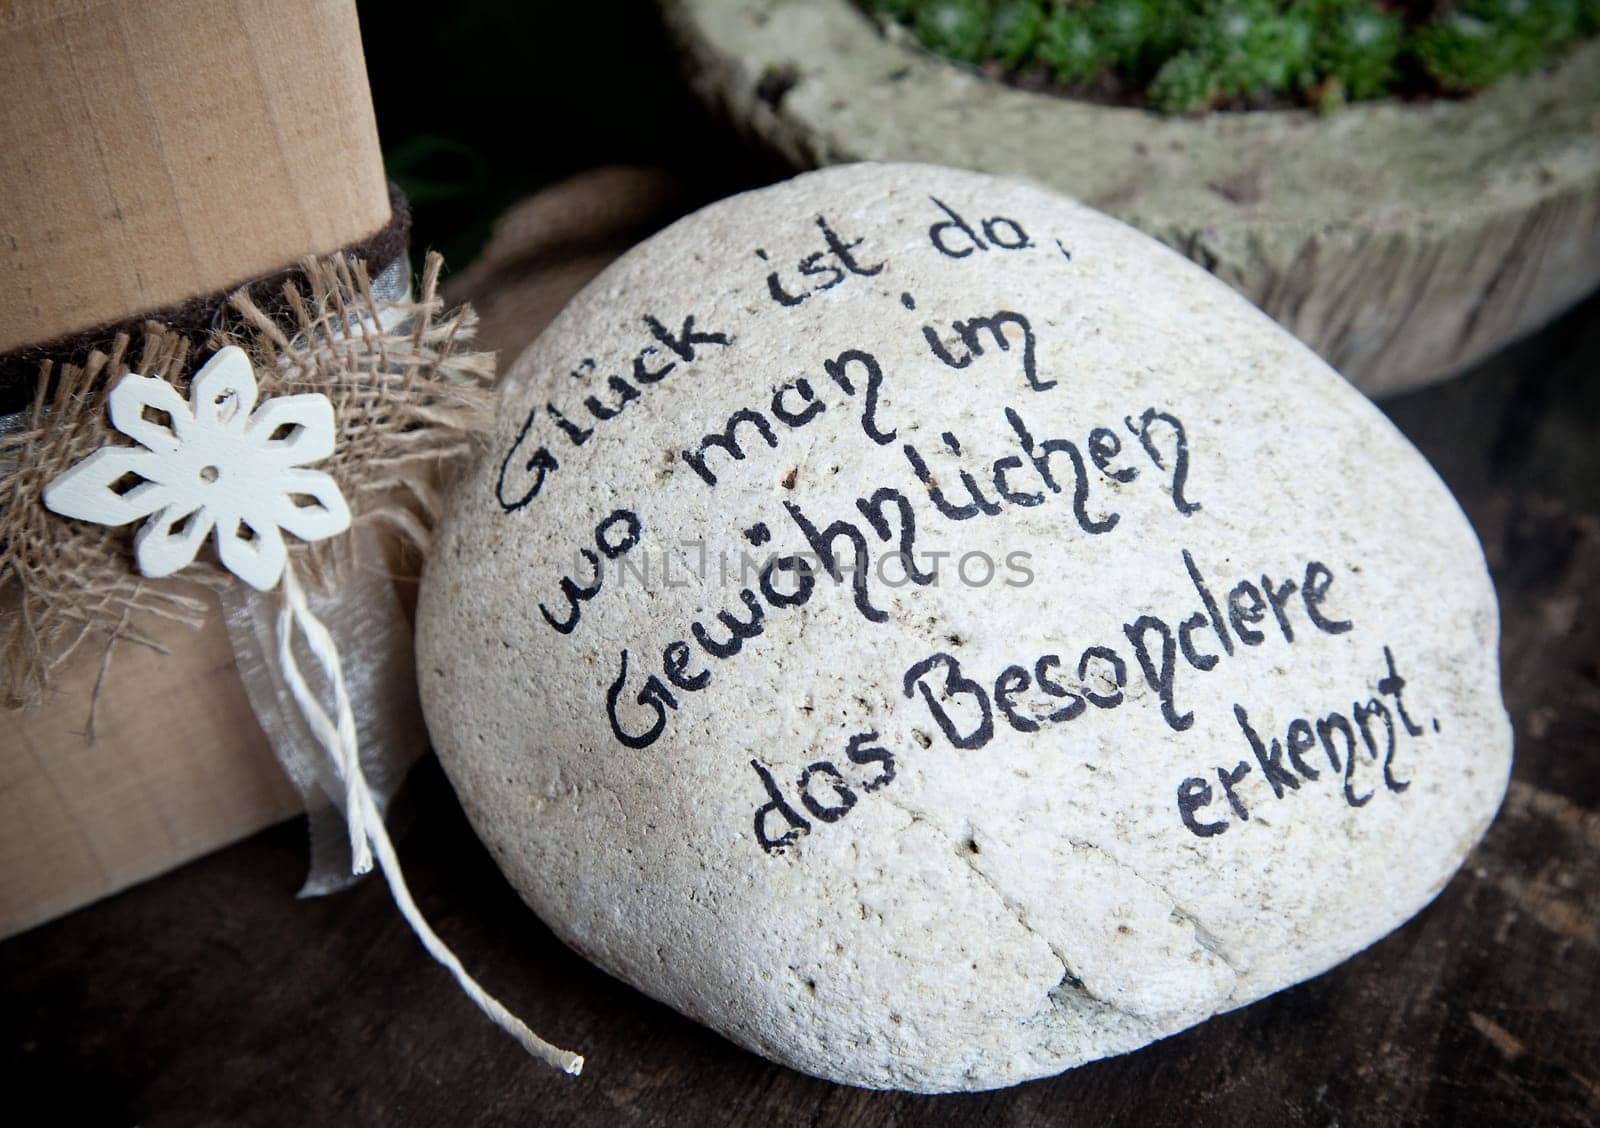 Glück ist da,
wo man im
Gewöhnlichen
das Besondere
erkennt.
UNLIMPHOTOS